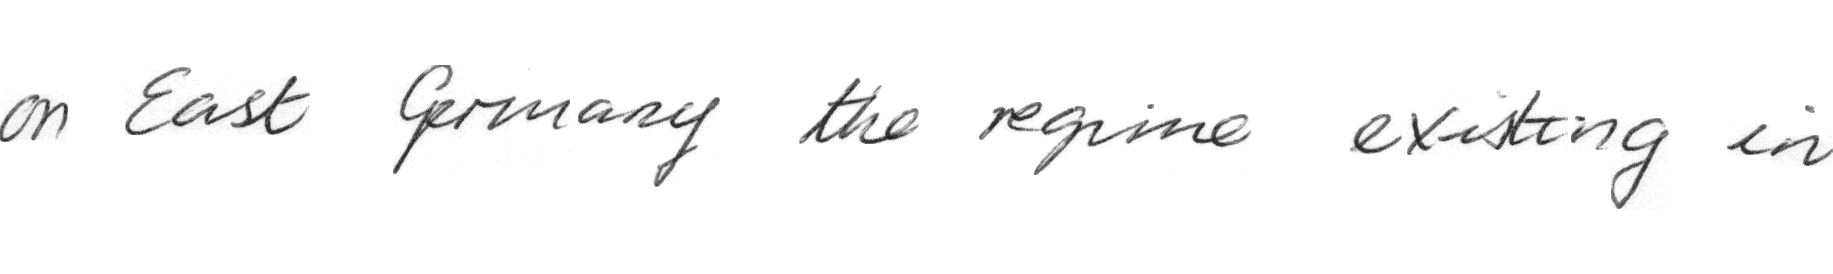 on East Germany the regime existing in